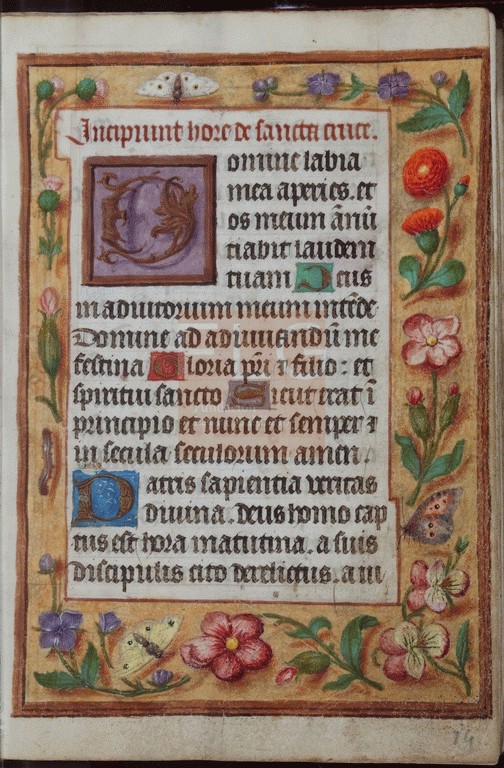 Incipiunt hore de sancta cruce.
Domine labia
mea aperies. et
os meum ānū
tiabit laudem
tuam Deus
in adiutorium meum intēde
Domine ad adiuuandū me
festina Gloria pr̄i ⁊ filio : et
spiritu sancto Sicut erat ī
principio et nunc et semper ⁊
in secula seculorum amen
Patris sapientia veritas
diuina. deus homo cap
tus est hora matutina. a suis
discipulis cito derelictus. a iu
14